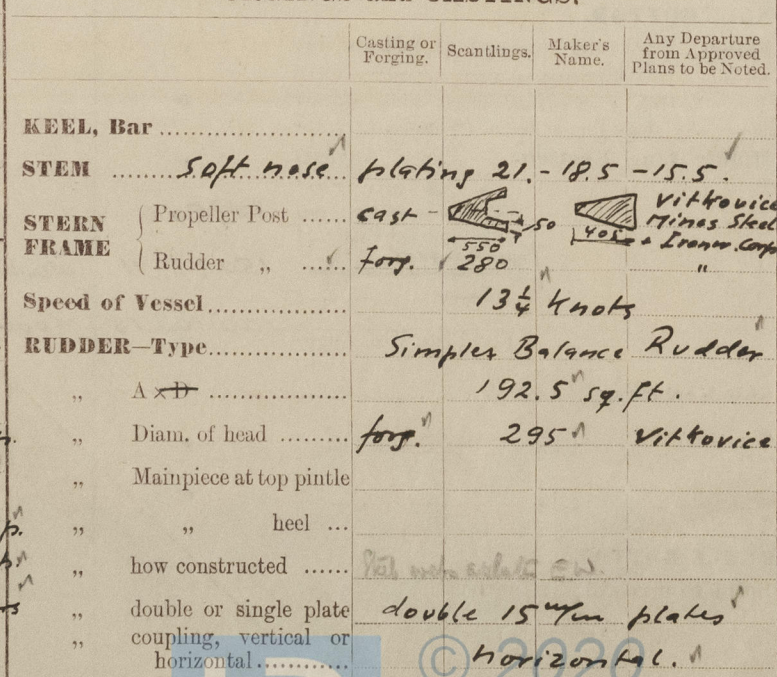 Casting or Forging. Scantlings. Maker's Name. Any Departure from Approved Plans to be Noted.
KEEL, Bar
STEM soft nose plating 21. - 18.5 - 15.5.
STERN FRAME { Propeller Post cast - 550 50 405 Vitkovice Mines Steel + Ironw. Corp
Rudder „ forg. 280 "
Speed of Vessel 13 1/4 Knots
RUDDER—Type Simplex Balance Rudder
„ A x D 192.5 sq. ft.
„ Diam. of head forg. 295 Vitkovice
„ Mainpiece at top pintle
„ „ heel
„ how constructed
„ double or single plate double 15 m/m plates
„ coupling, vertical or horizontal horizontal.
© 2020